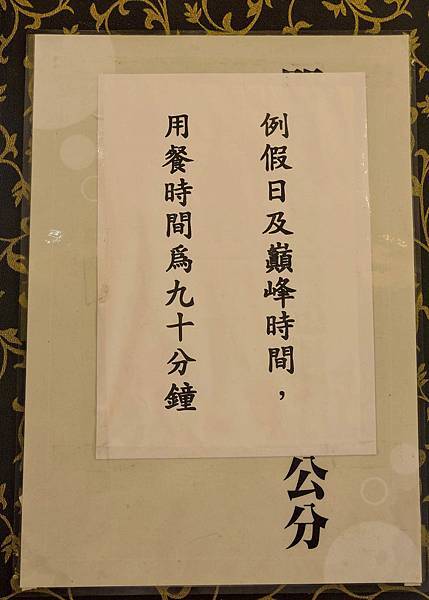 例假日及巔峰時間，
用餐時間為九十分鐘
公分